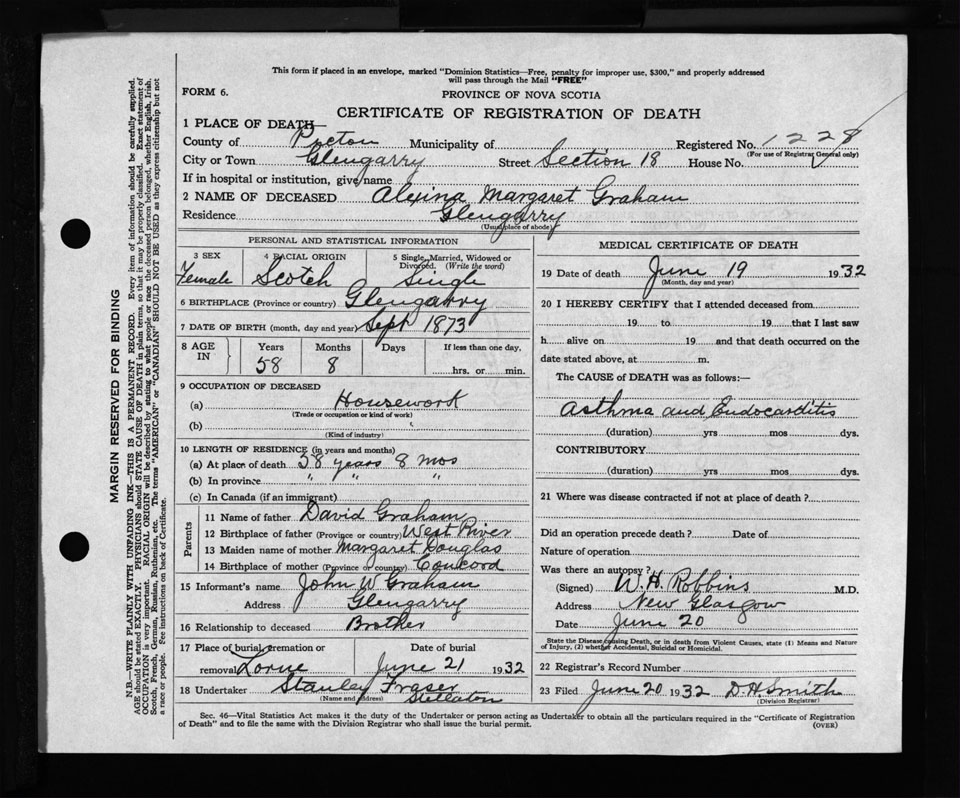 This form if placed in an envelope, marked "Dominion Statistics—Free, penalty for improper use, $300," and properly addressed
will pass through the Mail "FREE"
FORM 6.
PROVINCE OF NOVA SCOTIA
CERTIFICATE OF REGISTRATION OF DEATH
1 PLACE OF DEATH—
County of Pictou Municipality of Registered No. 1228
(For use of Registrar General only)
City or Town Glengarry Street Section 18 House No.
If in hospital or institution, give name
2 NAME OF DECEASED Alexina Margaret Graham
Residence Glengarry
(Usual place of abode)
PERSONAL AND STATISTICAL INFORMATION
3 SEX 4 RACIAL ORIGIN 5 Single, Married, Widowed or
Divorced. (Write the word)
Female Scotch Single
6 BIRTHPLACE (Province or country) Glengarry
7 DATE OF BIRTH (month, day and year) Sept 1873
8 AGE IN Years Months Days If less than one day,
58 8 hrs. or min.
9 OCCUPATION OF DECEASED
(a) Housework
(Trade or occupation or kind of work)
(b)
(Kind of industry)
10 LENGTH OF RESIDENCE (in years and months)
(a) At place of death 58 years 8 mos
(b) In province " " "
(c) In Canada (if an immigrant)
Parents
11 Name of father David Graham
12 Birthplace of father (Province or country) West River
13 Maiden name of mother Margaret Douglas
14 Birthplace of mother (Province or country) Concord
15 Informant's name John W Graham
Address Glengarry
16 Relationship to deceased Brother
17 Place of burial, cremation or Date of burial
removal Lorne June 21 1932
18 Undertaker Stanley Fraser
(Name and address) Stellarton
MEDICAL CERTIFICATE OF DEATH
19 Date of death June 19 1932
(Month, day and year)
20 I HEREBY CERTIFY that I attended deceased from
19 to 19 that I last saw
h alive on 19 and that death occurred on the
date stated above, at m.
The CAUSE of DEATH was as follows:—
Asthma and Endocarditis
(duration) yrs mos dys.
CONTRIBUTORY
(duration) yrs mos dys.
21 Where was disease contracted if not at place of death ?
Did an operation precede death ? Date of
Nature of operation
Was there an autopsy ?
(Signed) W. H. Robbins M.D.
Address New Glasgow
Date June 20
State the Disease causing Death, or in death from Violent Causes, state (1) Means and Nature
of Injury, (2) whether Accidental, Suicidal or Homicidal.
22 Registrar's Record Number
23 Filed June 20 1932 D. H. Smith
(Division Registrar)
Sec. 46—Vital Statistics Act makes it the duty of the Undertaker or person acting as Undertaker to obtain all the particulars required in the "Certificate of Registration
of Death" and to file the same with the Division Registrar who shall issue the burial permit. (OVER)
MARGIN RESERVED FOR BINDING
N.B.—WRITE PLAINLY WITH UNFADING INK—THIS IS A PERMANENT RECORD. Every item of information should be carefully supplied.
AGE should be stated EXACTLY. PHYSICIANS should STATE CAUSE OF DEATH in plain terms, so that it may be properly classified. Exact statement of
OCCUPATION is very important. RACIAL ORIGIN will be described by stating to what people or race the deceased person belonged, whether English, Irish,
Scotch, French, German, Russian, Ruthenian, etc. The terms "AMERICAN" or "CANADIAN" SHOULD NOT BE USED as they express citizenship but not
a race or people. See instructions on back of Certificate.